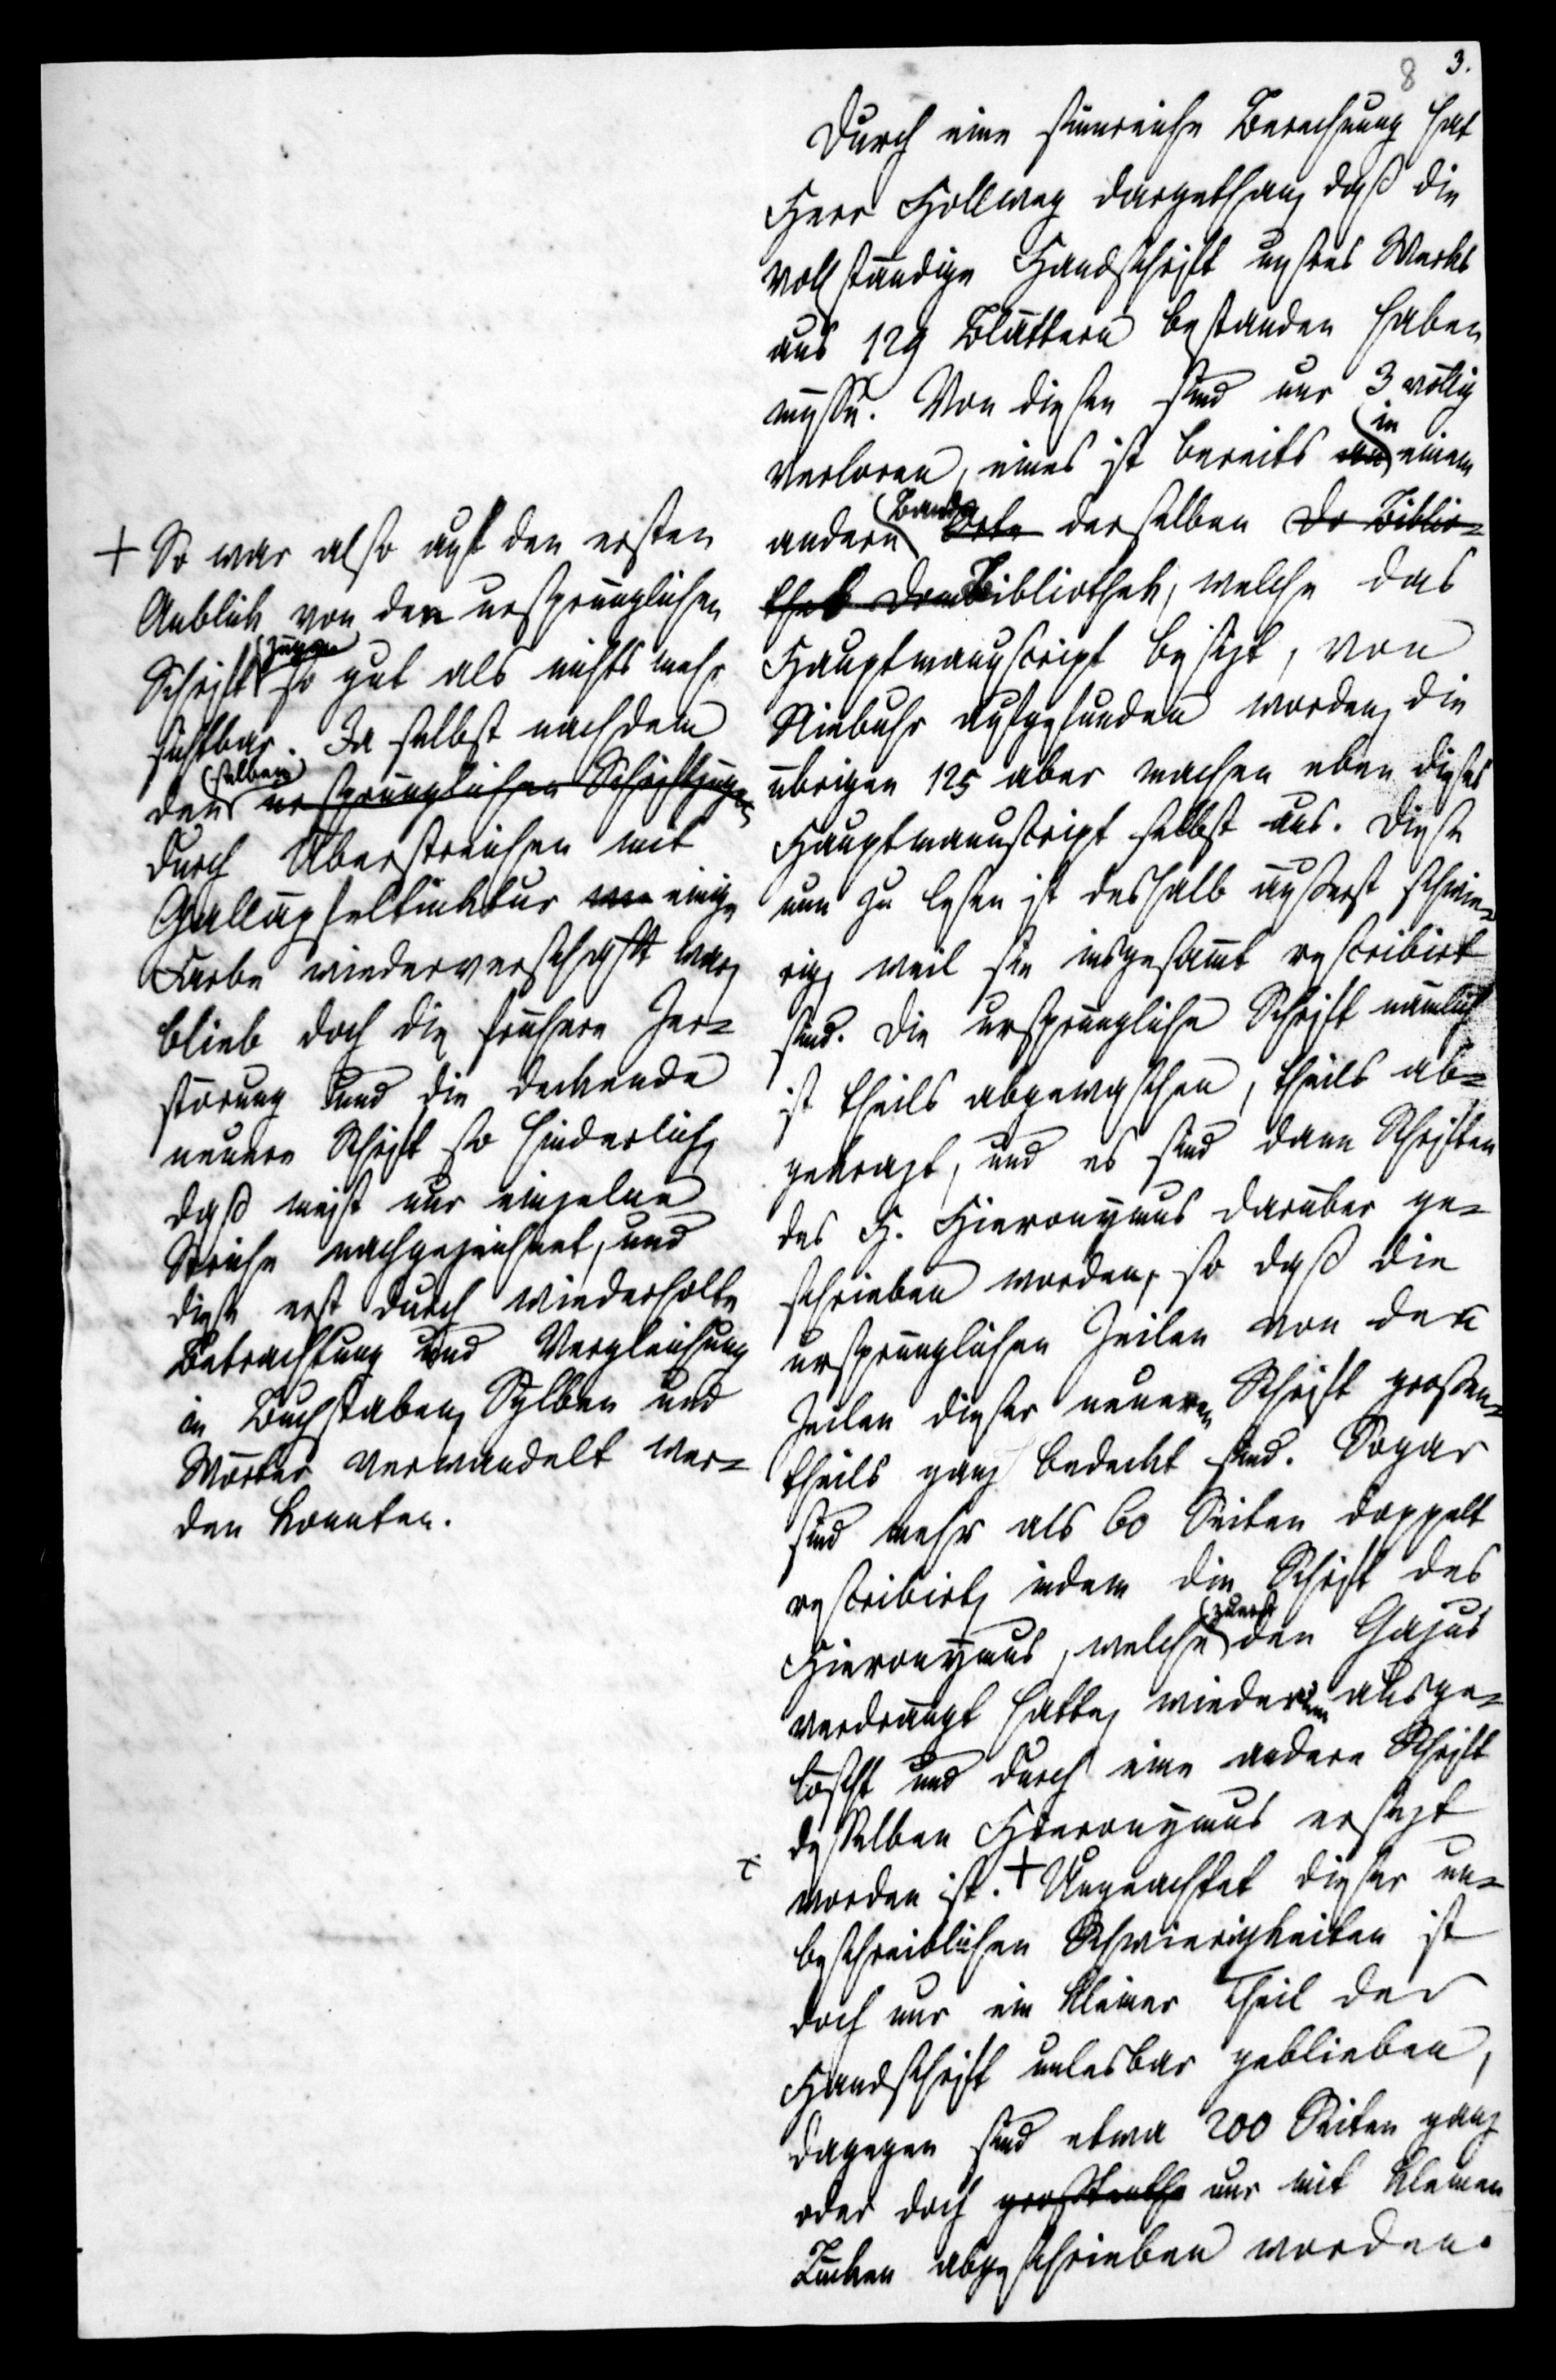 8 3.
Durch eine sinnreiche Berechnung hat
Herr Hollweg dargethan, daß die
vollständige Handschrift unsres Werks
aus 129 Blättern bestanden haben
müsse. Von diesen sind nur 3 völlig
in
verloren, eines ist bereits an einem
Bande
andern Orte derselben De Biblio-
thek dem Bibliothek, welche das
Hauptmanuscript besizt, von
Niebuhr aufgefunden worden, die
übrigen 125 aber machen eben dieses
Hauptmanuscript selbst aus. Diese
nun zu lesen ist deshalb äußerst schwie-
rig, weil sie insgesamt rescribirt
sind. Die ursprüngliche Schrift nämlich
ist theils abgewaschen, theils ab-
gekrazt, und es sind dann Schriften
des H. Hieronymus darüber ge-
schrieben worden, so daß die
ursprünglichen Zeilen von den
Zeilen dieser neueren Schrift großen-
theils ganz bedeckt sind. Sogar
sind mehr als 60 Seiten doppelt
rescribirt, indem die Schrift des
zuerst
Hieronymus, welche den Gajus
verdrängt hatte, wiederum ausge-
löscht und durch eine andere Schrift
desselben Hieronymus ersezt
worden ist. + Ungeachtet dieser un-
beschreiblichen Schwierigkeiten ist
doch nur ein kleiner Theil der
Handschrift unlesbar geblieben,
dagegen sind etwa 200 Seiten ganz
oder doch nur mit kleinen
Lücken abgeschrieben worden.
+ So war also auf den ersten
Anblick von den ursprünglichen
zügen
Schrift so gut als nichts mehr
sichtbar. Ja selbst nachdem
selben
den ursprünglichen Schriftzügen
durch Überstreichen mit
Galläpfeltinktur einige
Farbe wiederverschafft war,
blieb doch die frühere Zer-
störung und die deckende
neuere Schrift so hinderlich,
daß meist nur einzelne
Striche nachgezeichnet, und
diese erst durch wiederholte
Betrachtung und Vergleichung
in Buchstaben, Sylben und
Wörter verwandelt wer-
den konnten.